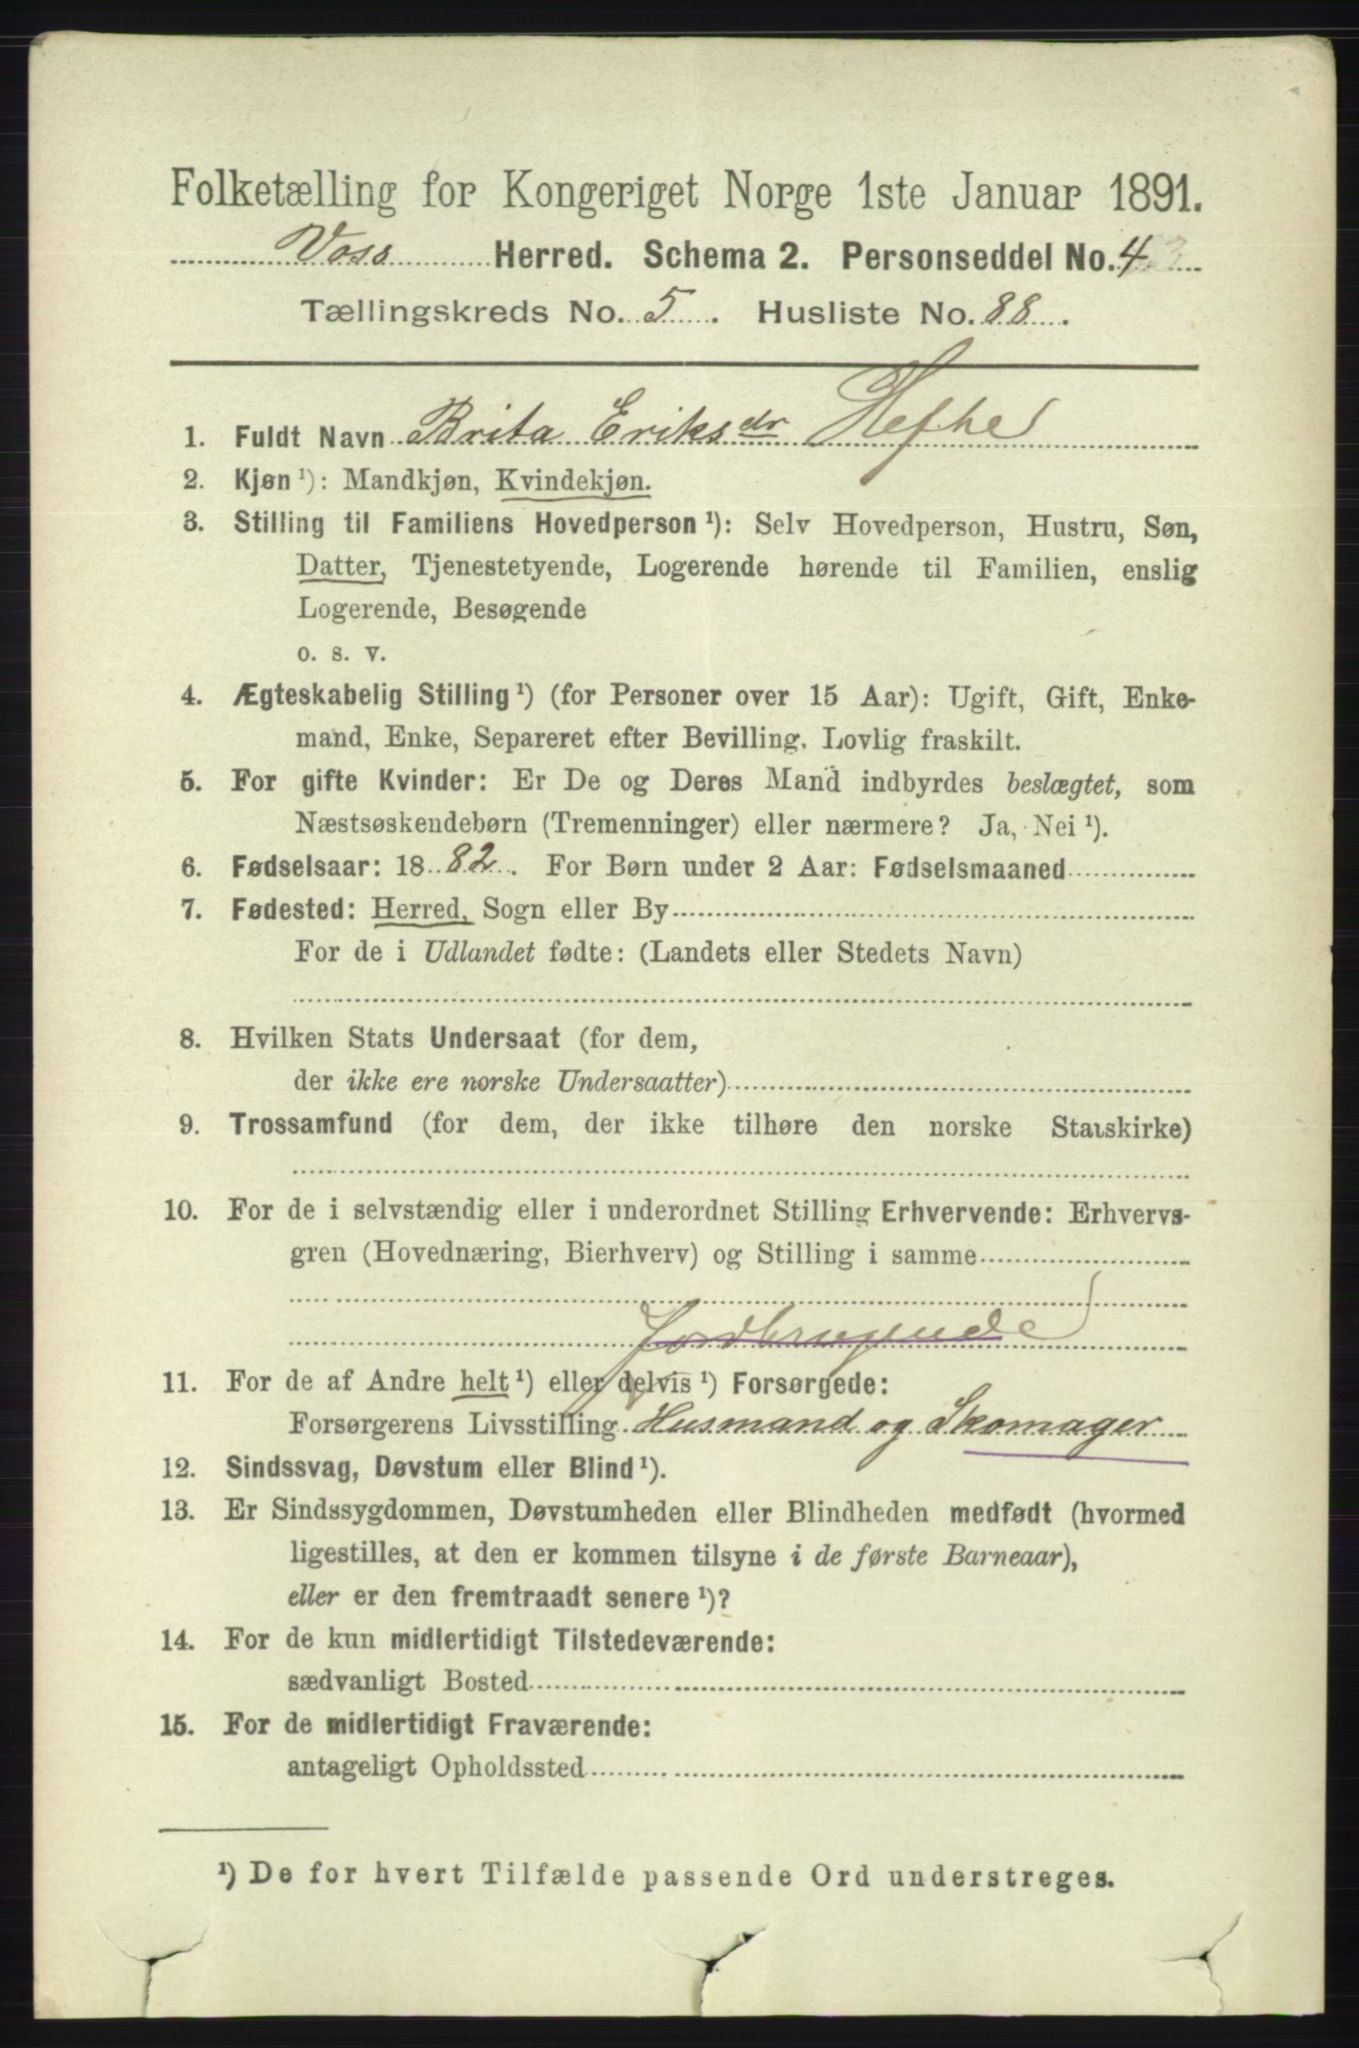 Folketælling for Kongeriget Norge 1ste Januar 1891.
Voss Herred. Schema 2. Personseddel No. 4
Tællingskreds No. 5. Husliste No. 88.
1. Fuldt Navn Brita Eriksdr Hefte
2. Kjøn¹): Mandkjøn, Kvindekjøn.
3. Stilling til Familiens Hovedperson¹): Selv Hovedperson, Hustru, Søn,
Datter, Tjenestetyende, Logerende hørende til Familien, enslig
Logerende, Besøgende
o. s. v.
4. Ægteskabelig Stilling¹) (for Personer over 15 Aar): Ugift, Gift, Enke-
mand, Enke, Separeret efter Bevilling. Lovlig fraskilt.
5. For gifte Kvinder: Er De og Deres Mand indbyrdes beslægtet, som
Næstsøskendebørn (Tremenninger) eller nærmere? Ja, Nei¹).
6. Fødselsaar: 1882. For Børn under 2 Aar: Fødselsmaaned
7. Fødested: Herred, Sogn eller By
For de i Udlandet fødte: (Landets eller Stedets Navn)
8. Hvilken Stats Undersaat (for dem,
der ikke ere norske Undersaatter)
9. Trossamfund (for dem, der ikke tilhøre den norske Statskirke)
10. For de i selvstændig eller i underordnet Stilling Erhvervende: Erhvervs-
gren (Hovednæring, Bierhverv) og Stilling i samme
Jordbrugende
11. For de af Andre helt¹) eller delvis¹) Forsørgede:
Forsørgerens Livsstilling Husmand og Skomager
12. Sindssvag, Døvstum eller Blind¹).
13. Er Sindssygdommen, Døvstumheden eller Blindheden medfødt (hvormed
ligestilles, at den er kommen tilsyne i de første Barneaar),
eller er den fremtraadt senere¹)?
14. For de kun midlertidigt Tilstedeværende:
sædvanligt Bosted
15. For de midlertidigt Fraværende:
antageligt Opholdssted
¹) De for hvert Tilfælde passende Ord understreges.